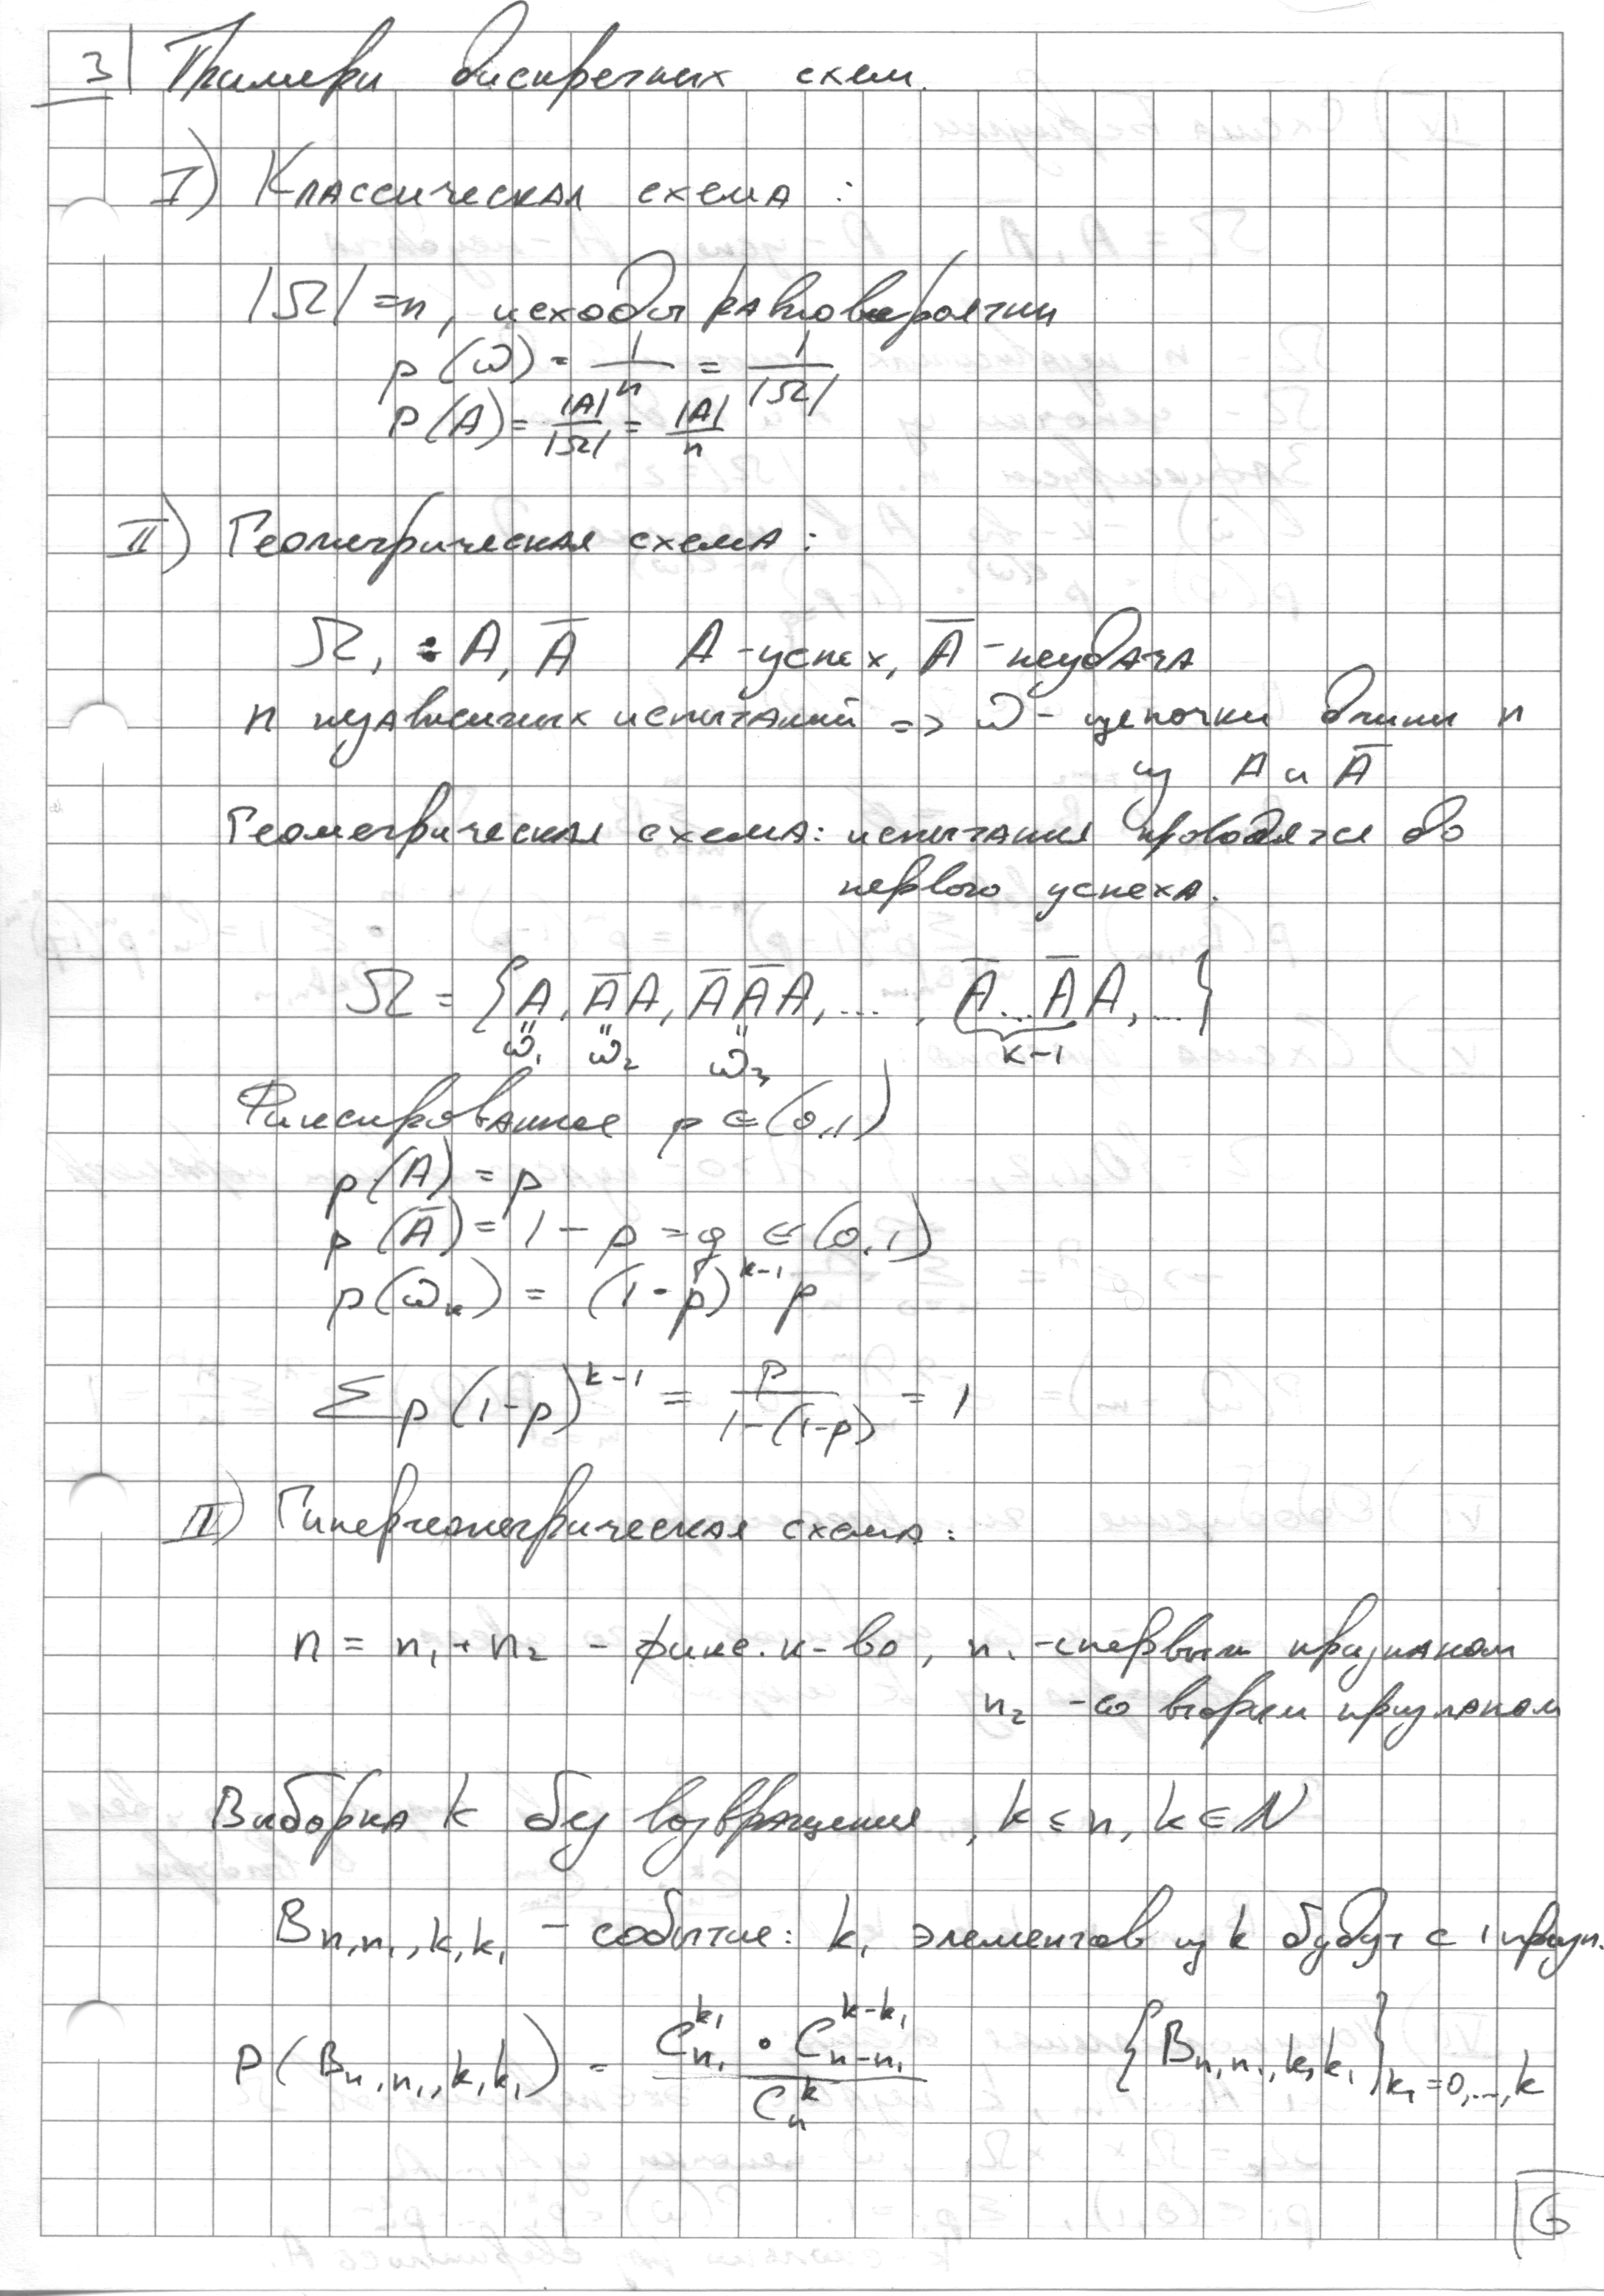 3| Примеры дискретных схем.
I) Классическая схема :
|Ω| = n, исходы равновероятны
p(ω) = 1/n = 1/|Ω|
P(A) = |A|/|Ω| = |A|/n
II) Геометрическая схема :
Ω₁ = A, Ā   A - успех, Ā - неудача
n независимых испытаний => ω - цепочки длины n
из A и Ā
Геометрическая схема: испытания проводятся до
первого успеха.
Ω = {A, ĀA, ĀĀA, ... , Ā...ĀA, ...}
ω₁ ω₂ ω₃ k-1
Фиксированное p ∈ (0,1)
p(A) = p
p(Ā) = 1 - p = q ∈ (0,1)
p(ωₖ) = (1-p)^{k-1} p
Σ p(1-p)^{k-1} = p/(1-(1-p)) = 1
III) Гипергеометрическая схема :
n = n₁ + n₂ - фикс. к-во, n₁ - с первым признаком
n₂ - со вторым признаком
Выборка k без возвращения, k ≤ n, k ∈ N
B_{n,n₁,k,k₁} - событие: k₁ элементов из k будут с 1 призн.
P(B_{n,n₁,k,k₁}) = (C_{n₁}^{k₁} • C_{n-n₁}^{k-k₁})/C_n^k   {B_{n,n₁,k,k₁}}_{k₁=0,...,k}
6